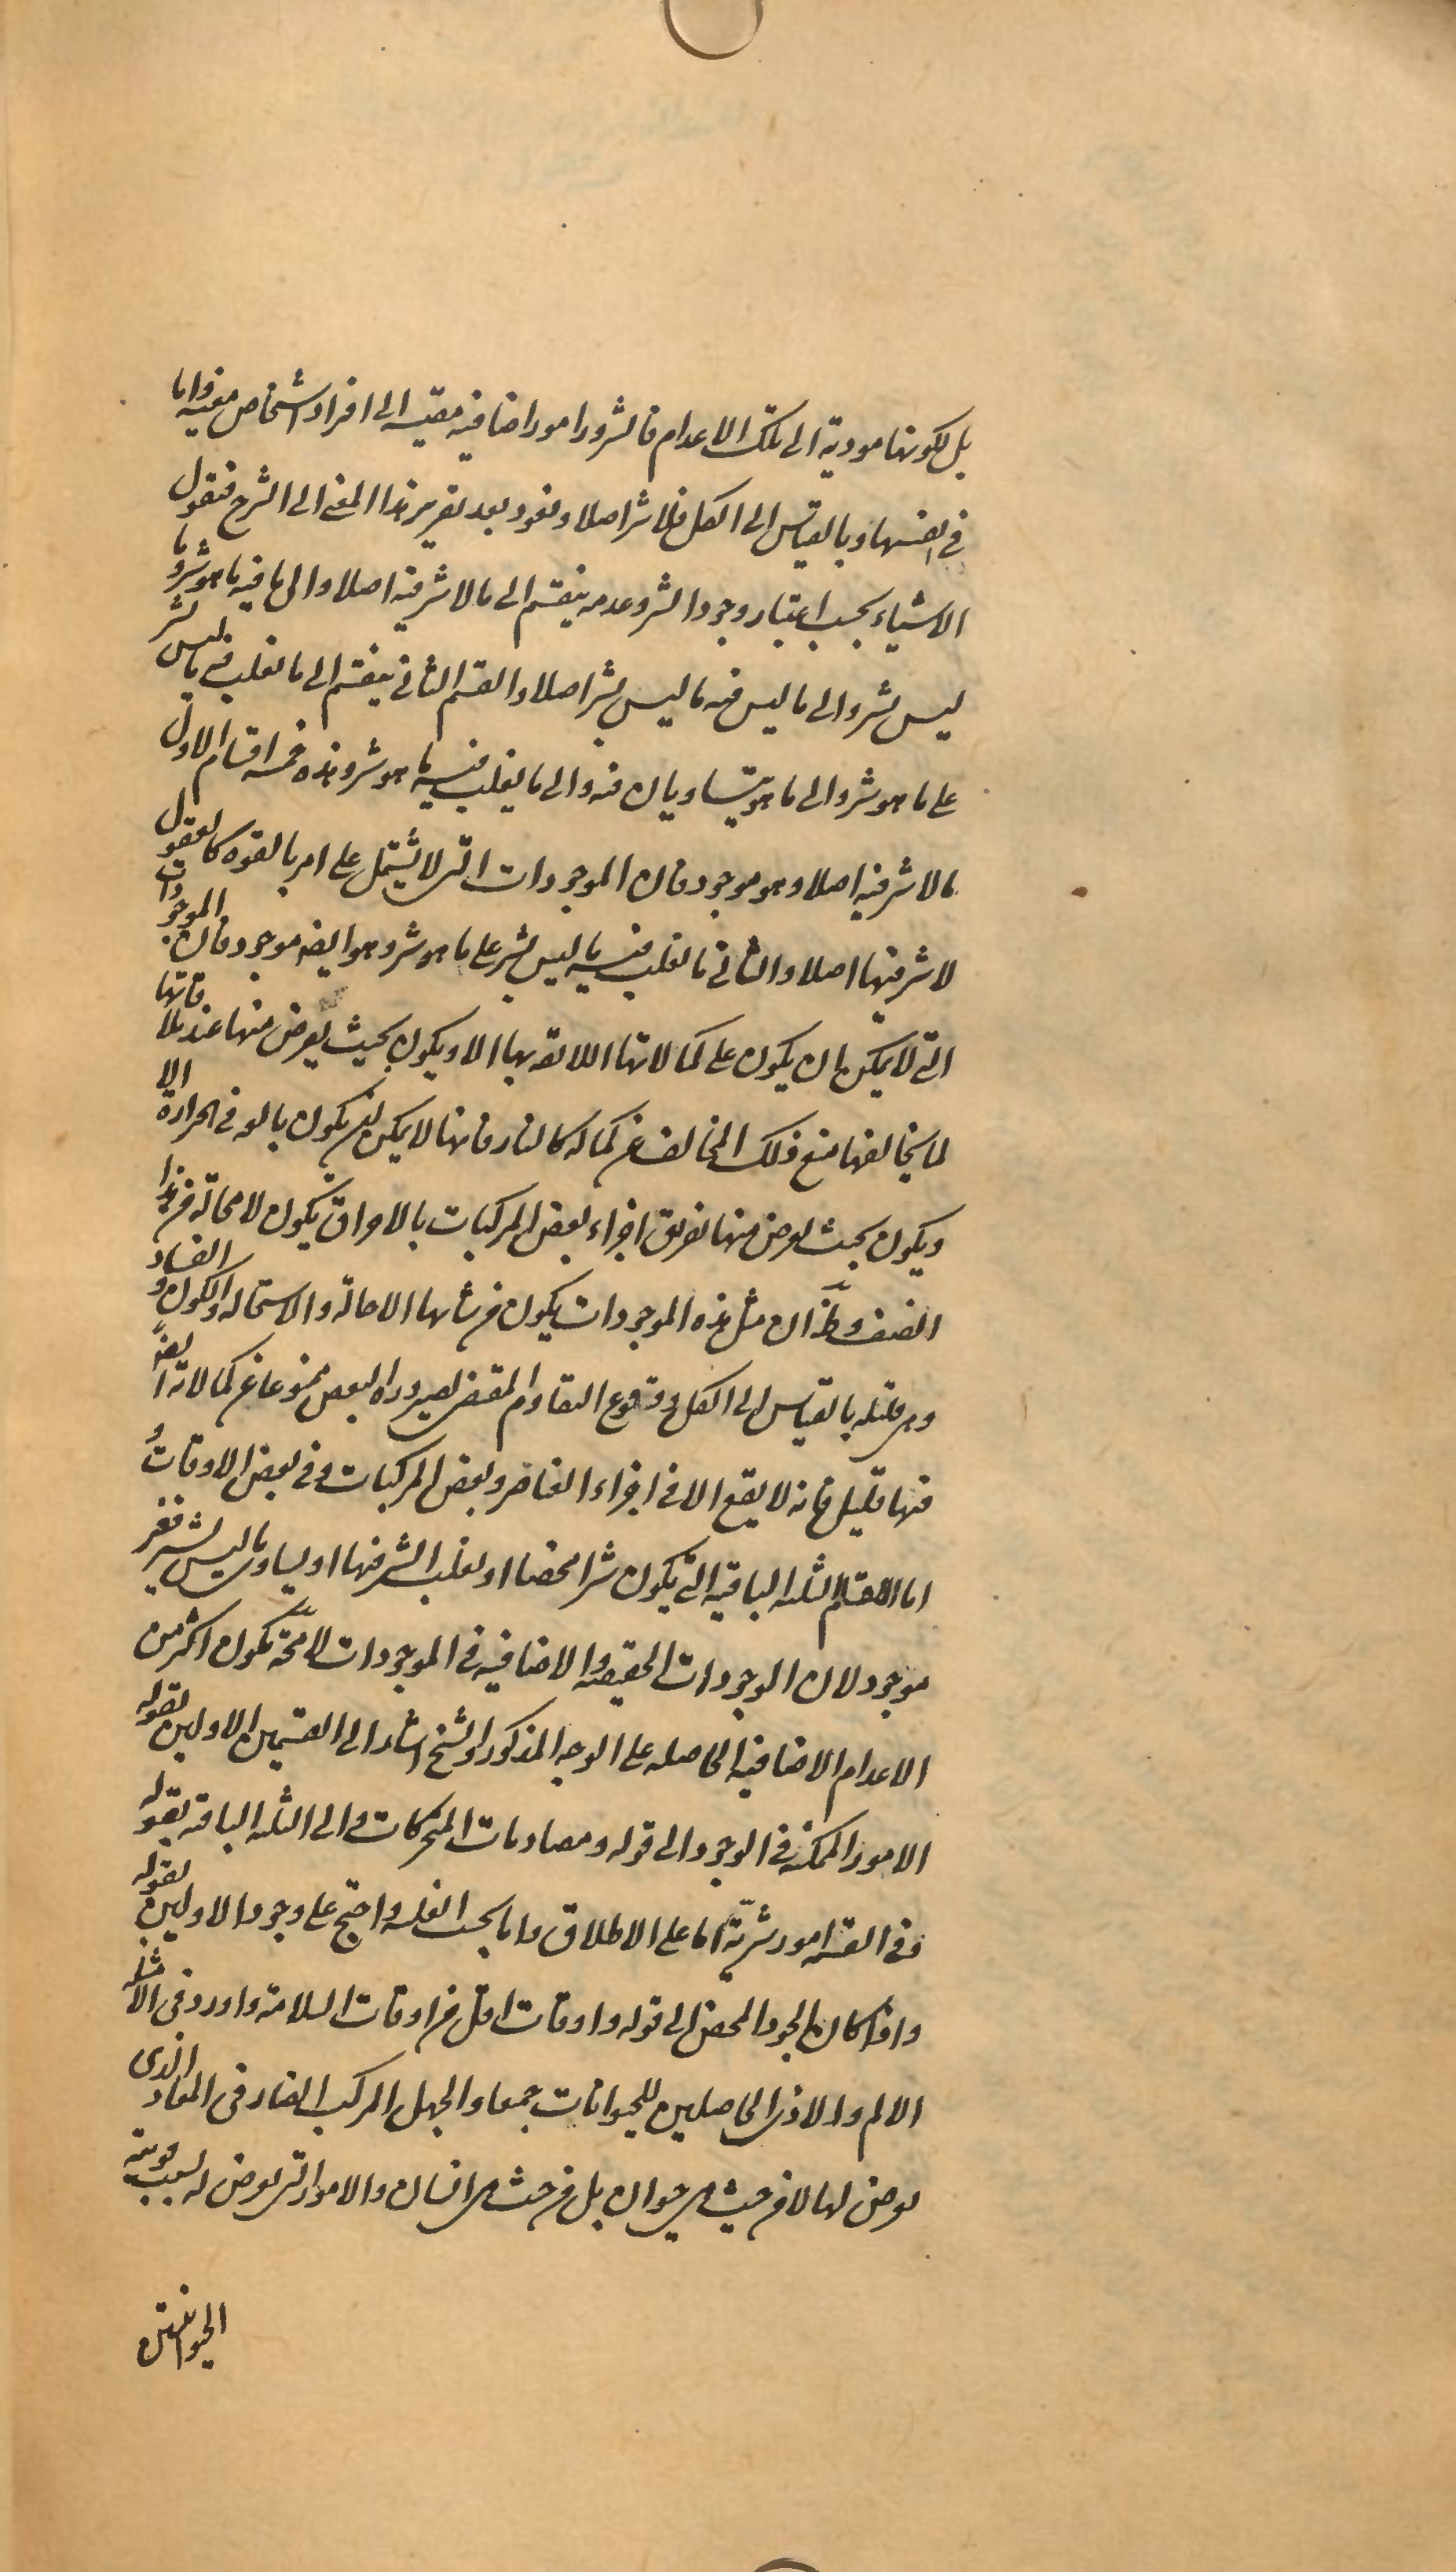 بل لكونها مودية الى تلك الاعدام فالشرور امور اضافيه مقيسه الى افراد اشخاص معينه واما
فى انفسها وبالقياس الى الكل فلا شر اصلا ونعود بعد تقرير هذا المعنى الى الشرح فنقول
الاشياء بحسب اعتبار وجود الشر وعدمه ينقسم الى ما لا شر فيه اصلا والى ما فيه ما هو شر وما
ليس بشر والى ما ليس فيه ما ليس بشر اصلا والقسم الثانى ينقسم الى ما يغلب فيه ما ليس بشر
على ما هو شر والى ما هو يتساويان فيه والى ما يغلب فيه ما هو شر وهذه خمسه اقسام الاول
ما لا شر فيه اصلا وهو موجود فان الموجودات التى لا يشتمل على امر بالقوه كالعقول
لا شر فيها اصلا والثانى ما يغلب فيه ما ليس بشر على ما هو شر وهو ايضه موجود فان الموجودات
التى لا يمكن ان يكون على كمالاتها اللائقه بها الا ويكون بحيث يعرض منها عند ملاقاتها
لما يخالفها منع ذلك المخالف عن كماله كالنار فانها لا يمكن ان يكون بالغه فى الحرارة الا
ويكون بحيث يعرض منها تفريق اجزاء بعض المركبات بالاحراق يكون لا محاله من هذا
الصنف وظ ان مثل هذه الموجودات يكون من شانها الاحالة والاستحاله والكون و الفساد
وهى قليله بالقياس الى الكل ووقوع التقاوم المقتضى لصيروره البعض ممنوعا عن كمالاته ايضا
فيها قليل فانه لا يقع الا فى اجزاء العناصر وبعض المركبات وفى بعض الاوقات و
اما الاقسام الثلثه الباقيه التى يكون شرا محضا او يغلب الشر فيها او يساوى ما ليس بشر فغير
موجود لان الوجودات الحقيقيه والاضافيه فى الموجودات لا محة تكون اكثر من
الاعدام الاضافيه الحاصله على الوجه المذكور والشيخ اشار الى القسمين الاولين بقوله
الامور الممكنه فى الوجود الى قوله ومصادمات المتحركات والى الثلثه الباقيه بقوله
وفى القسمه امور شرية اما على الاطلاق واما بحسب الغلبه واحتج على وجود الاولين بقوله
واذا كان الجود المحض الى قوله واوقات اقل من اوقات السلامة واورد فى الامثله
الالم والاذى الحاصلين للحيوانات جميعا والجهل المركب الضار فى المعاد الذى
يعرض لها لا من حيث هى حيوان بل من حيث هى انسان والامور التى يعرض له بسبب قوتيه
الحيوانيتين